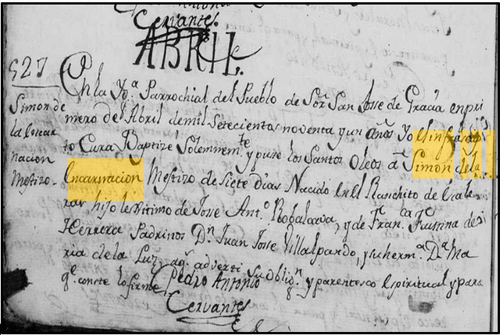 Cervantes
ABRIL.
527
Simon de
la Encar
nacion
Mestizo.
En la Yg.ª Parrochial del Pueblo de Sor. San Jose de Gracia en pri
mero del Abril de mil Setecientos noventa y un años Yo el infraescri
to Cura Baptizé Solemnem.te y puse los Santos Oleos à Simon de la
Encarnacion Mestizo de Siete dias Nacido en el Ranchito de
hijo lexitimo de Jose Ant.º Robalcava, y de Fran.ca Faustina de
Herrera Padrinos D.n Juan Jose Villalpando, y su herm.ª D.ª Ma
ria de la Luz, aq.n advertí su oblig.n y parentesco espiritual y para
q.e conste lo firmé Pedro Antonio
Cervantes